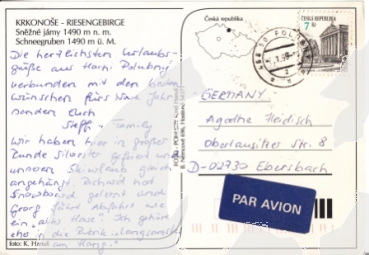 KRKONOŠE - RIESENGEBIRGE
Sněžné jámy 1490 m n. m.
Schneegruben 1490 m ü. M.
Die herzlichsten Urlaubs-
grüße aus Harr. Polubny
verbunden mit den besten
wünschen fürs neue Jahr
senden Euch
Steffi + Family
Wir haben hier in großer
Runde Silvester gefeiert und
unseren Skiurlaub gleich
angehängt. Richard hat
Snowboard gelernt und
Georg fährt Abfahrt wie
ein "alter Hase". Ich gehöre
ehe in die Rubrik
am Hang."
foto: K. Hník
Česká republika
ČESKÁ REPUBLIKA
7 Kč
GERMANY
Agathe Heidisch
Oberlausitzer Str. 8
D-02730 Ebersbach
PAR AVION